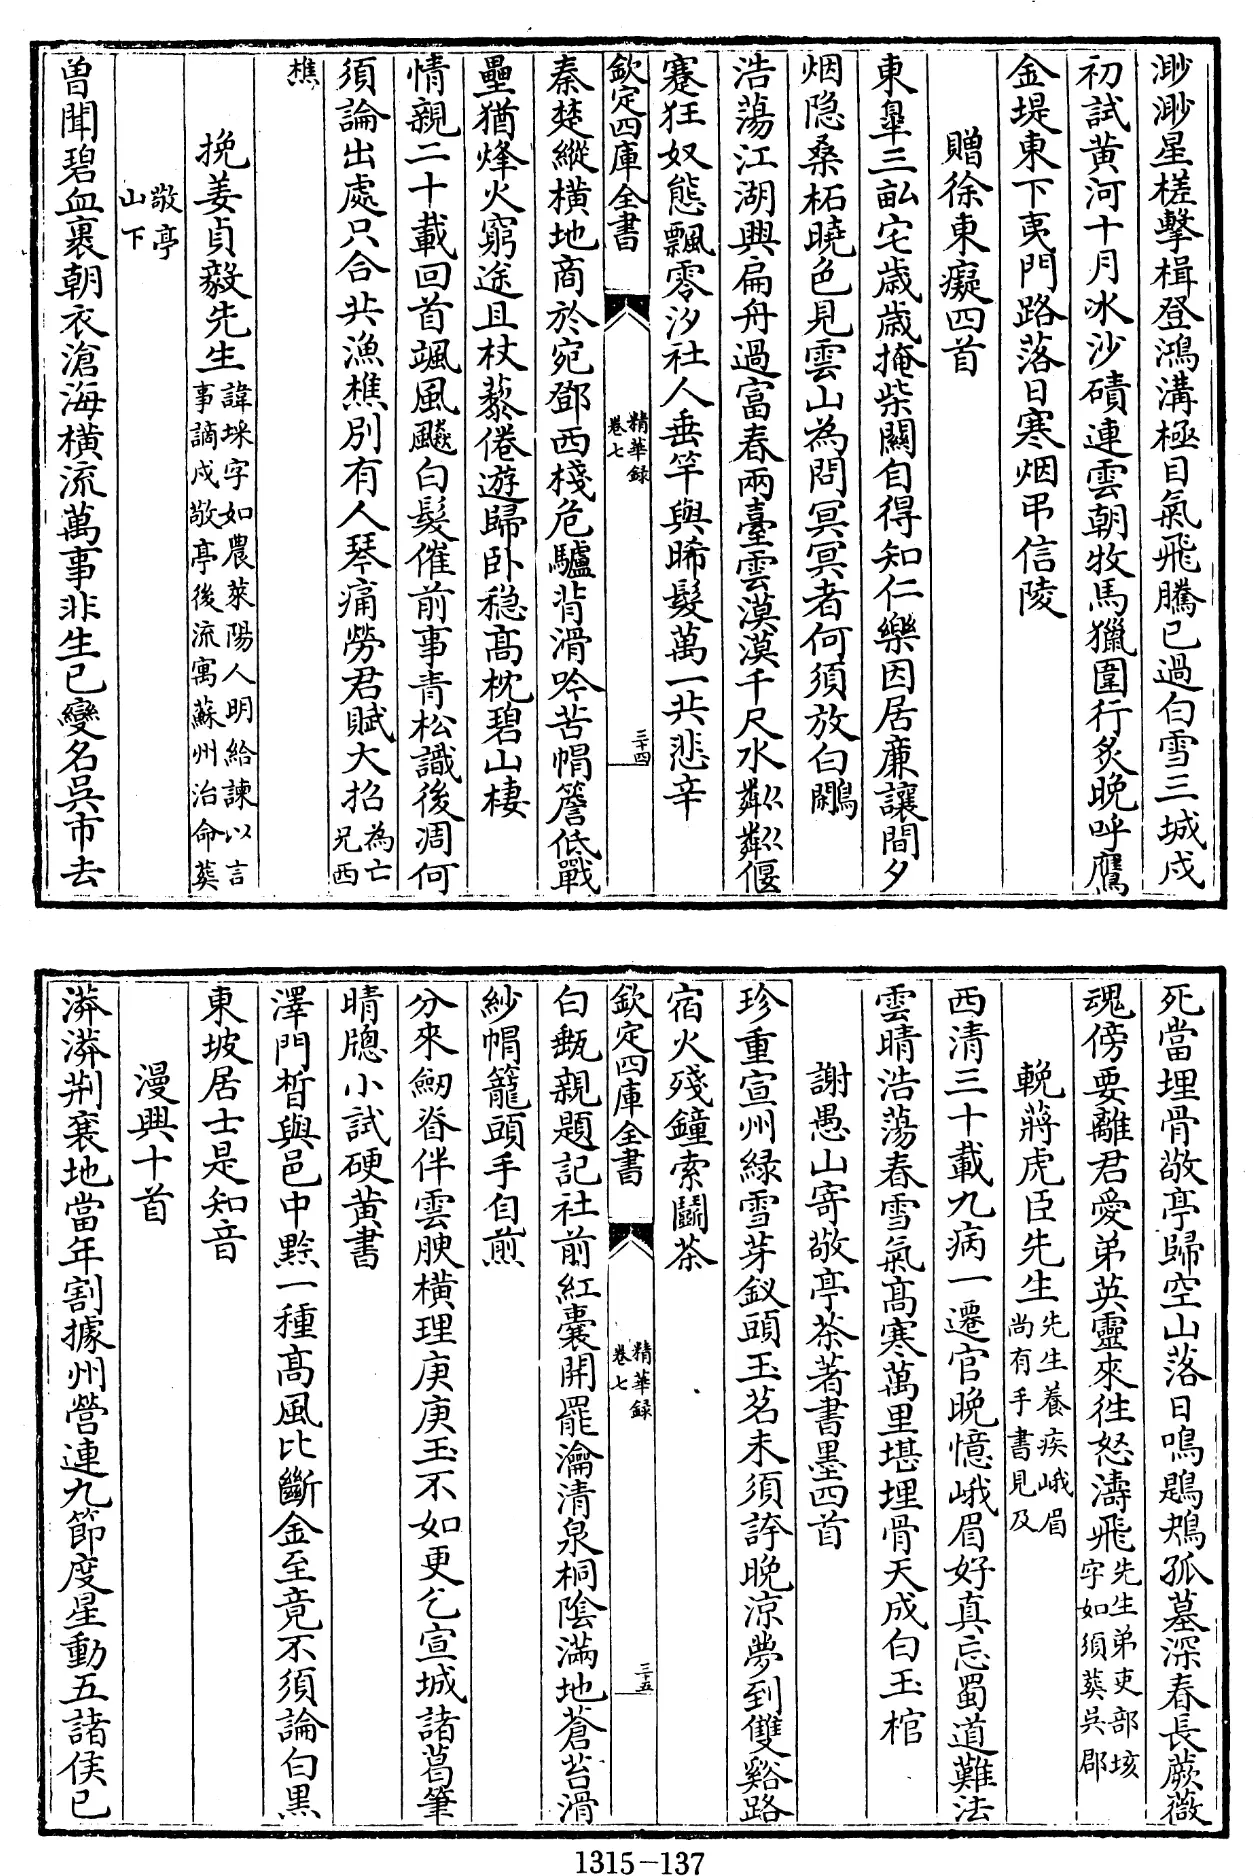 渺渺星槎擊楫登鴻溝極目氣飛騰已過白雪三城戍
初試黄河十月冰沙磧連雲朝牧馬獵圍行炙晚呼鷹
金堤東下夷門路落日寒烟弔信陵
贈徐東癡四首
東臯三畝宅歳歳掩柴關自得知仁樂因居亷讓間夕
烟隐桑柘曉色見雲山為問冥冥者何須放白鷴
浩蕩江湖興扁舟過富春兩臺雲漠漠千尺水粼粼偃
蹇狂奴態飄零汐社人垂竿與晞髮萬一共悲辛
欽定四庫全書
精華録
卷七
三十四
秦楚縱横地商於宛鄧西棧危驢背滑吟苦帽簷低戰
壘猶烽火窮途且杖藜倦遊歸卧穏髙枕碧山棲
情親二十載回首颯風飈白髮催前事青松識後凋何
須論出處只合共漁樵別有人琴痛勞君賦大招為亡
兄西
樵
挽姜貞毅先生諱埰字如農萊陽人明給諫以言
事謫戍敬亭後流寓蘇州治命葬
敬亭
山下
曽聞碧血裹朝衣滄海横流萬事非生已變名吳市去
死當埋骨敬亭歸空山落日鳴鶗鴂孤墓深春長蕨薇
魂傍要離君愛弟英靈來徃怒濤飛先生弟吏部垓
字如須葬吳郡
輓蔣虎臣先生先生養疾峨眉
尚有手書見及
西清三十載九病一遷官晩憶峨眉好真忘蜀道難法
雲晴浩蕩春雪氣髙寒萬里堪埋骨天成白玉棺
謝愚山寄敬亭茶著書墨四首
珍重宣州緑雪芽釵頭玉茗未須誇晩凉夢到雙谿路
宿火殘鐘索鬭茶
欽定四庫全書
精華録
卷七
三十五
白甀親題記社前紅囊開罷瀹清泉桐陰滿地蒼苔滑
紗帽籠頭手自煎
分來劒脊伴雲腴横理庚庚玉不如更乞宣城諸葛筆
晴牕小試硬黄書
澤門晳與邑中黔一種髙風比斷金至竟不須論白黒
東坡居士是知音
漫興十首
漭漭荆襄地當年割據州營連九節度星動五諸侯已
1315-137